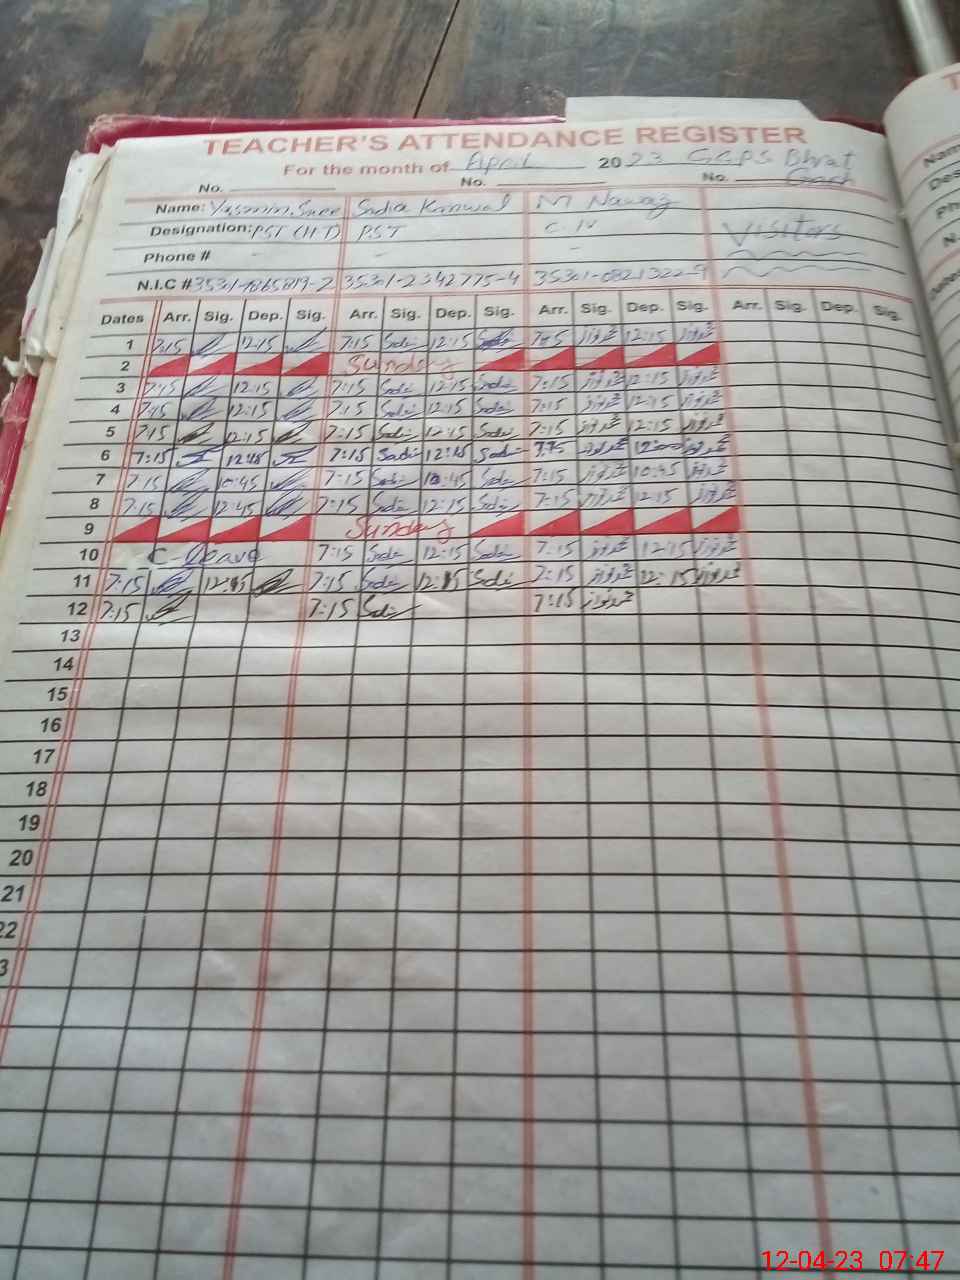 TEACHER'S ATTENDANCE REGISTER
For the month of April 2023 GGPS Bhrat
No. No. No. Gach
Name: Yasmin Sadia Kanwal M Nawaz
Designation: PST (HT) PST C. IV Visitors
Phone # - - -
N.I.C # 35301-2342775-4 35301-0821322-9
Dates Arr. Sig. Dep. Sig. Arr. Sig. Dep. Sig. Arr. Sig. Dep. Sig. Arr. Sig. Dep. Sig.
1 7:15 12:15 7:15 Sadia 12:15 Sadia 7:15 12:15
2 Sunday
3 7:15 12:15 7:15 Sadia 12:15 Sadia 7:15 12:15
4 7:15 12:15 7:15 Sadia 12:15 Sadia 7:15 12:15
5 7:15 12:15 7:15 Sadia 12:15 Sadia 7:15 12:15
6 7:15 7:15 Sadia 12:15 Sadia
7 7:15 10:45 7:15 Sadia 10:45 Sadia 7:15 10:45
8 7:15 12:45 7:15 Sadia 12:15 Sadia 7:15 12:15
9 Sunday
10 C-Leave 7:15 Sadia 12:15 Sadia 7:15 12:15
11 7:15 7:15 Sadia 12:15 Sadia 7:15 12:15
12 7:15 7:15 Sadia 7:15
13
14
15
16
17
18
19
20
21
22
3
12-04-23 07:47